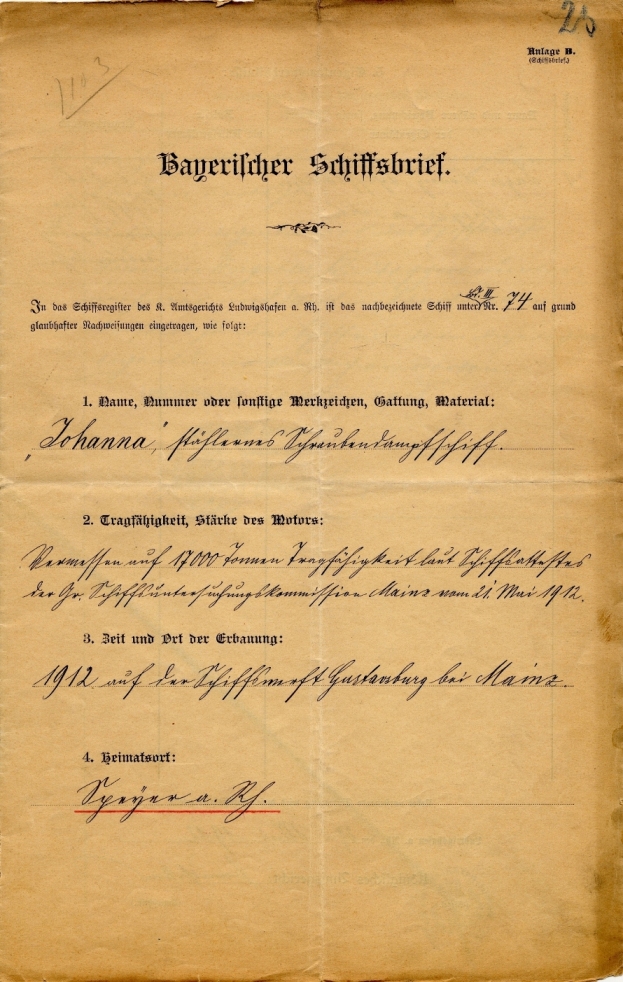 25
Anlage B.
(Schiffsbrief.)
1103
Bayerischer Schiffsbrief.
In das Schiffsregister des K. Amtsgerichts Ludwigshafen a. Rh. ist das nachbezeichnete Schiff unter Bd. III Nr. 74 auf grund
glaubhafter Nachweisungen eingetragen, wie folgt:
1. Name, Nummer oder sonstige Merkzeichen, Gattung, Material:
„Johanna", stählernes Schraubendampfschiff.
2. Tragfähigkeit, Stärke des Motors:
Vermessen auf 17000 Tonnen Tragfähigkeit laut Schiffsattestes
der Gr. Schiffsuntersuchungskommission Mainz vom 21. Mai 1912.
3. Zeit und Ort der Erbauung:
1912 auf der Schiffswerft Gustavsburg bei Mainz.
4. Heimatsort:
Speyer a. Rh.